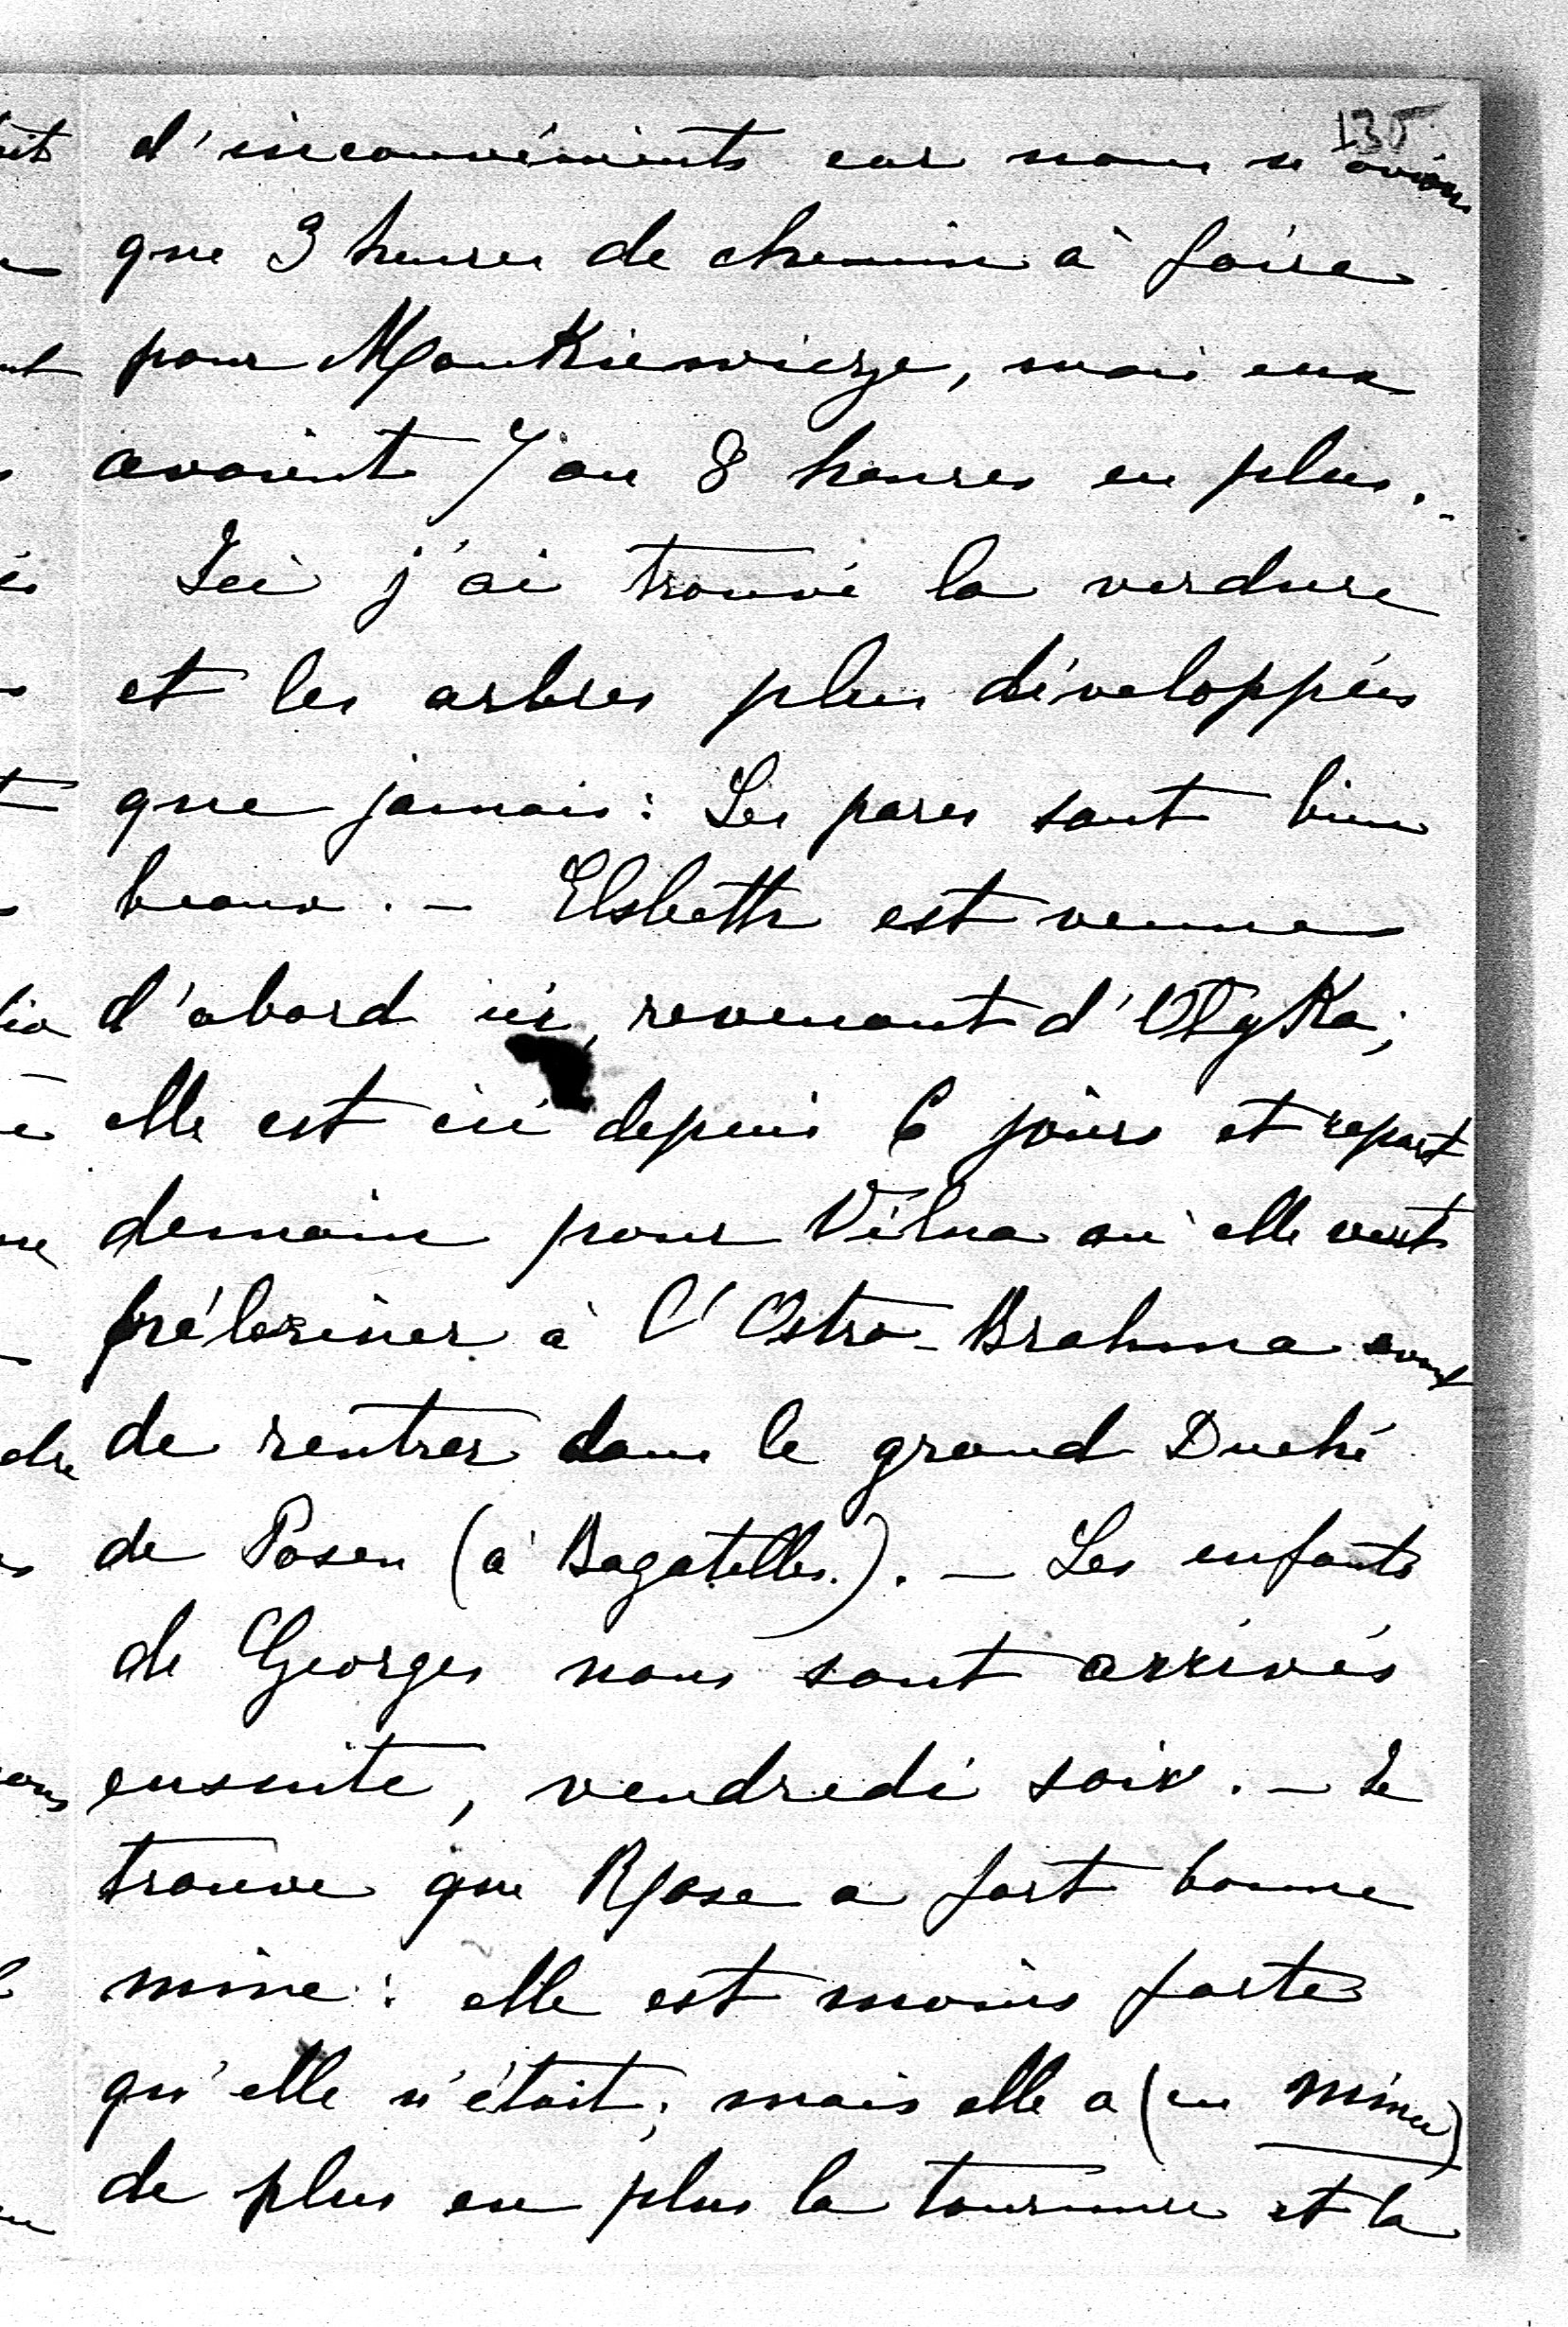 135
d'inconvénients car nous n'avions
que 3 heures de chemin à faire
pour Mankiewicze, mais eux
avaient 7 ou 8 heures en plus.-
Ici j'ai trouvé la verdure
et les arbres plus développés
que jamais: Les parcs sont bien
beaux. - Elsbeth est venue
d'abord ici, revenant d'Olyka;
elle est ici depuis 6 jours et repart
demain pour Vilna où elle veut
préleriner à l'Ostro-Brahma avant
de rentrer dans le grand Duché
de Posen (à Bagatelles.). - Les enfants
de Georges nous sont arrivés
ensuite, vendredi soir. - Je
trouve que Rose a fort bonne
mine: elle est moins forte
qu'elle n'était; mais elle a (en mince)
de plus en plus la tournure et la